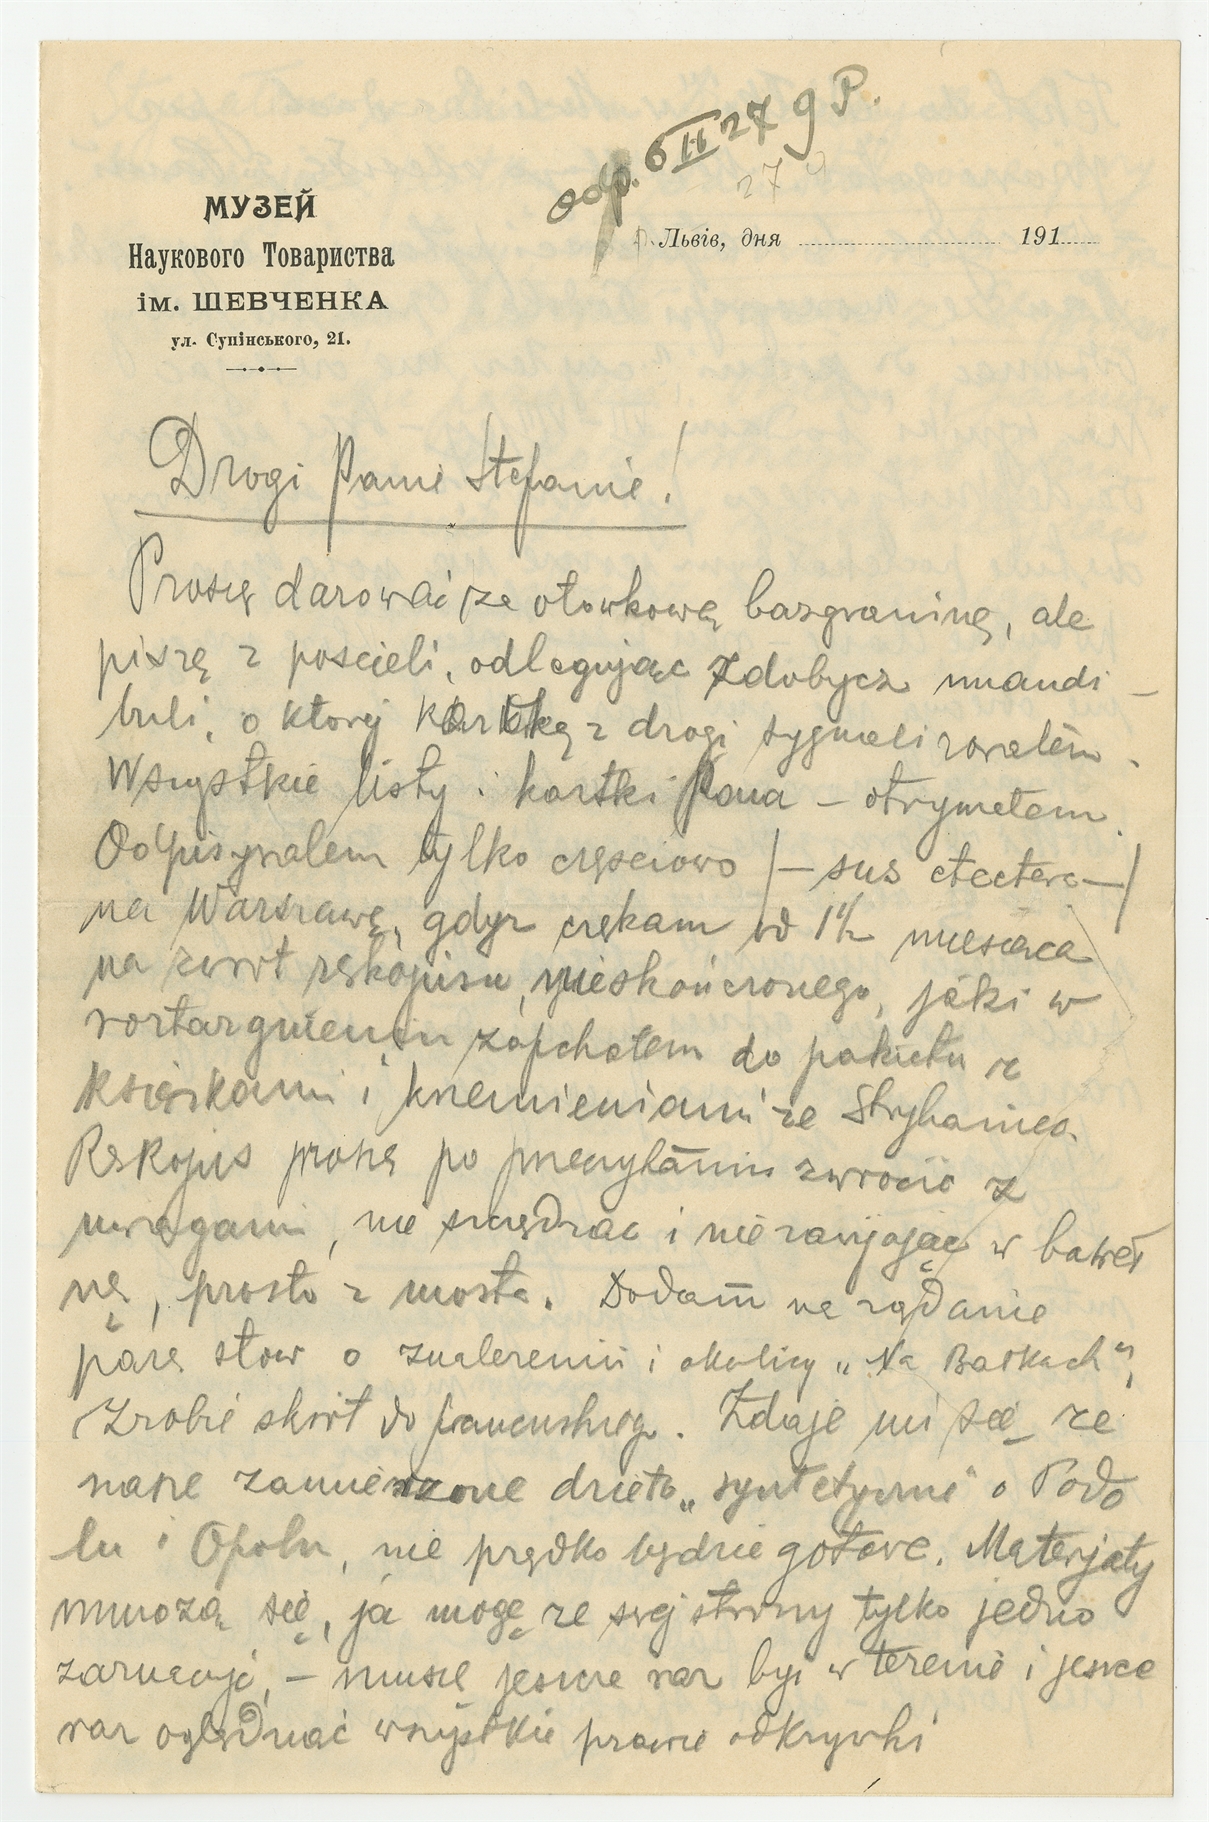 odp. 6 II 27 g P.
27 g
МУЗЕЙ
Наукового Товариства
ім. ШЕВЧЕНКА
ул. Супінського, 21.
Львів, дня 191
Drogi Panie Stefanie!
Proszę darować za ołówkową bazgraninę, ale
piszę z pościeli, odlegując zdobycz mandi-
buli, o której kartką z drogi sygnalizowałem.
Wszystkie listy i kartki Pana – otrzymałem.
Odpisywałem tylko częściowo /– sus etcetera –/
na Warszawę, gdyż czekam od 1 1/2 miesiąca
na zwrot rękopisu, nieskończonego, jaki w
roztargnieniu zapchałem do pakietu z
książkami i krzemieniami ze Stryhaniec.
Rękopis proszę po przeczytaniu zwrócić z
uwagami, nie szczędząc i nie zawijając w baweł
nę, prosto z mosta. Dodam na żądanie
parę słow o znalezieniu i okolicy „Na Bałkach",
zrobię skrót do francuskiego. Zdaje mi się że
nasze zamierzone dzieło „syntetyczne" o Podo
lu i Opolu, nie prędko będzie gotowe. Materjały
mnożą się, ja mogę ze swej strony tylko jedno
zaręczyć, – muszę jeszcze raz być w terenie i jeszcze
raz oglądnąć wszystkie prawie odkrywki